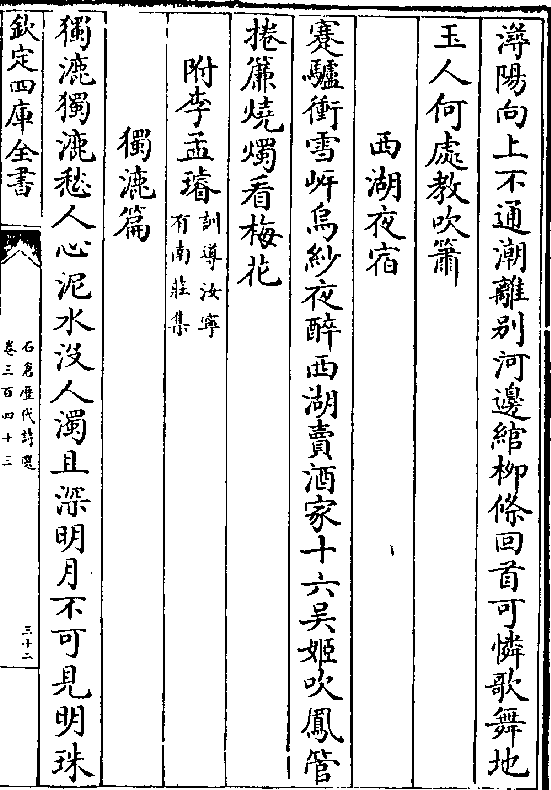 潯陽向上不通潮離别河邊綰柳條回首可憐歌舞地
玉人何處教吹簫
西湖夜宿
蹇驢衝雪岸烏紗夜醉西湖賣酒家十六吴姬吹鳳管
捲簾燒燭看梅花
附李孟璿訓導汝寧
有南莊集
獨漉篇
獨漉獨漉愁人心泥水没人濁且深明月不可見明珠
欽定四庫全書
石倉歷代詩選
卷三百四十三
三十二